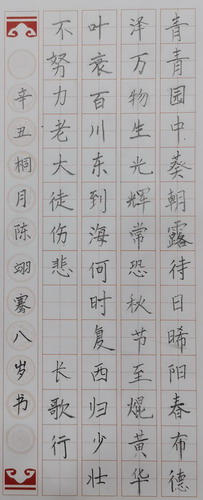 青青园中葵朝露待日晞阳春布德
泽万物生光辉常恐秋节至焜黄华
叶衰百川东到海何时复西归少壮
不努力老大徒伤悲 长歌行
辛丑桐月陈翊骞八岁书